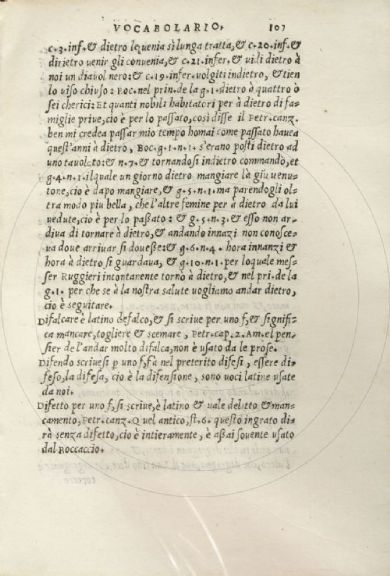 VOCABOLARIO. 107
c.3.inf.& dietro le uenia sì lunga tratta, & c.20.inf.&
dirietro uenir gli conuenia, & c.21.infer.& uidi dietro à
noi un diauol nero: & c.19.infer.uolgiti indietro, & tien
lo uiso chiuso: Boc.nel prin.de la g.1.dietro à quattro ò
sei cherici: Et quanti nobili habitatori per à dietro di fa-
miglie priue, cio è per lo passato, così disse il Petr.canz.
ben mi credea passar mio tempo homai come passato hauea
quest'anni à dietro, Boc.g.1.n.1.s'erano posti dietro ad
uno tauolato: & n.7.& tornandosi indietro commandò, et
g.4.n.1.il quale un giorno dietro mangiare là giu uenu-
tone, cio è dapo mangiare, & g.5.n.1.ma parendogli ol-
tra modo piu bella, che l'altre femine per à dietro da lui
uedute, cio è per lo passato: & g.5.n.3.& esso non ar-
diua di tornare à dietro, & andando innazi non conosce-
ua doue arriuar si douesse: & g.6.n.4.hora innanzi &
hora à dietro si guardaua, & g.10.n.1.per lo quale mes-
ser Ruggieri incontanente tornò à dietro, & nel pri.de la
g.1.per che se à la nostra salute uogliamo andar dietro,
cio è seguitare.
Difalcare è latino defalco, & si scriue per uno f, & signifi-
ca mancare, togliere & scemare, Petr.cap.2.A m.el pen-
sier de l'andar molto difalca, non è usato da le prose.
Difendo scriuesi p uno f, fà nel preterito difesi, essere di-
feso, la difesa, cio è la difensione, sono uoci latine usate
da noi.
Difetto per uno f, si scriue, è latino & uale delitto, & man-
camento, Petr.canz.Q uel antico, st.6.questo ingrato di-
rà senza difetto, cio è intieramente, è assai souente usato
dal Boccaccio.